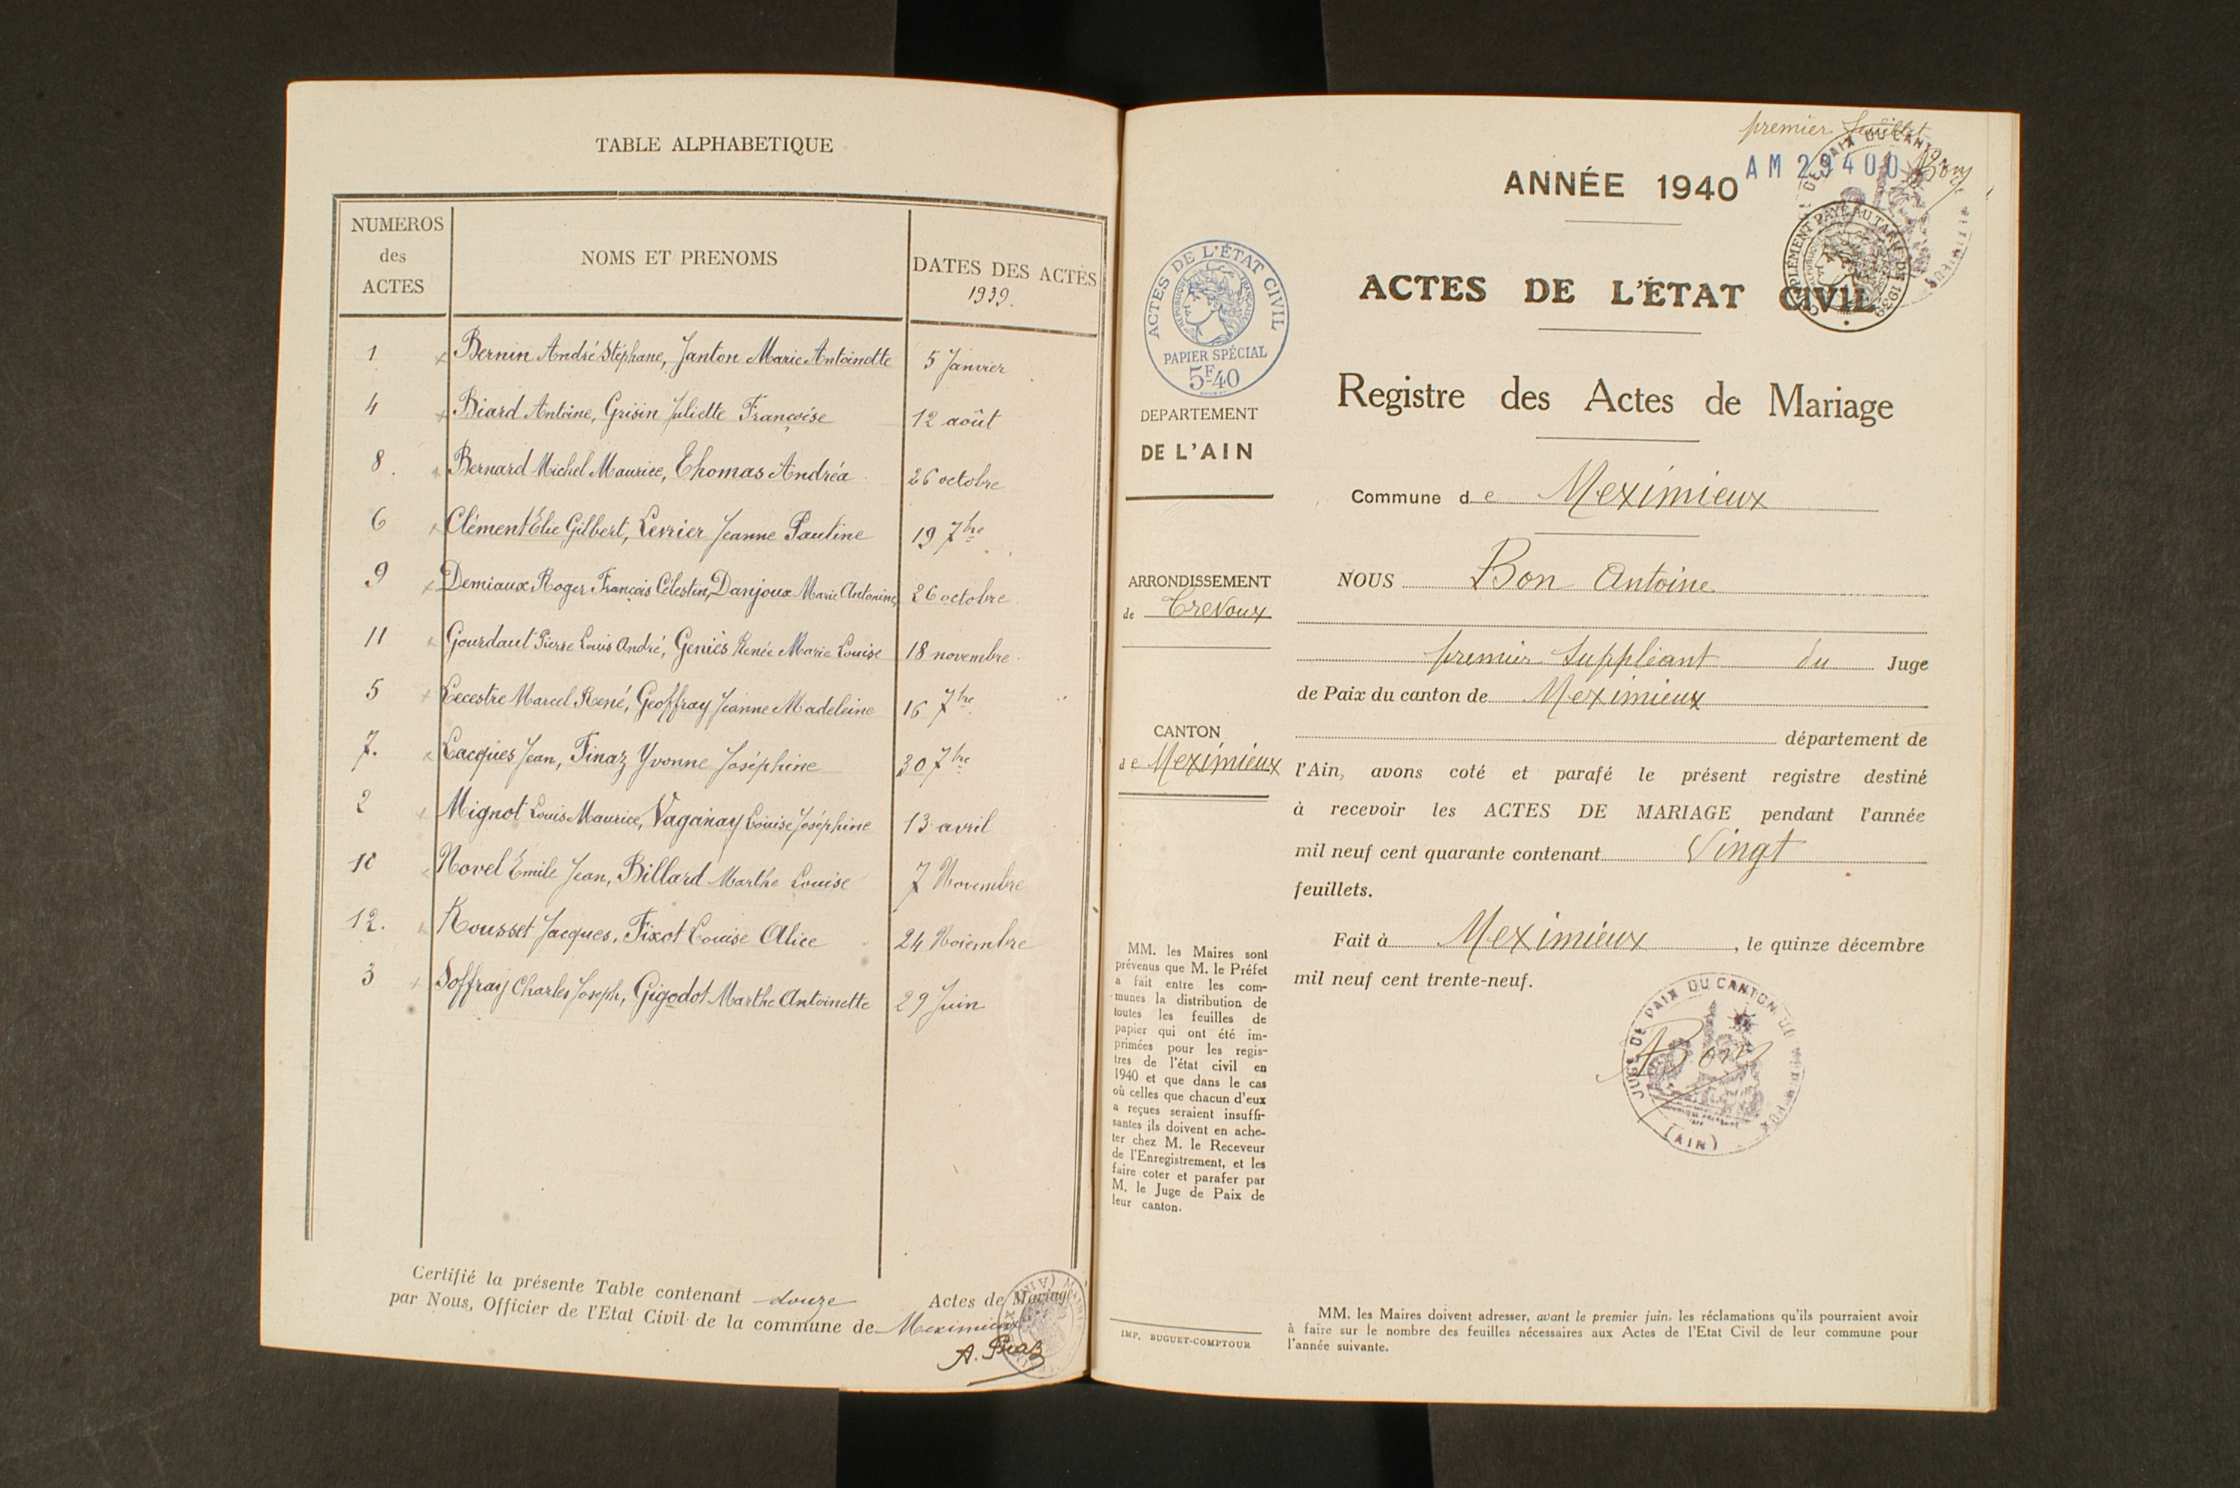 TABLE ALPHABETIQUE
NUMEROS
des
ACTES
NOMS ET PRENOMS
DATES DES ACTES
1939.
1 Bernin André Stéphane, Janton Marie Antoinette 5 Janvier
4 Biard Antoine, Grisin Juliette Françoise 12 août
8. Bernard Michel Maurice, Thomas Andréa 26 octobre
6 Clément Élie Gilbert, Levrier Jeanne Pauline 19 7bre
9 Demiaux Roger François Célestin, Danjoux Marie Antonine 26 octobre
11 Gourdaut Pierre Louis André, Geniès Renée Marie Louise 18 novembre
5 Lecestre Marcel René, Geoffray Jeanne Madeleine 16 7bre
7. Lacques Jean, Finaz Yvonne Joséphine 30 7bre
2 Mignot Louis Maurice, Vaganay Louise Joséphine 13 avril
10 Novel Émile Jean, Billard Marthe Louise 7 Novembre
12. Rousset Jacques, Fixot Louise Alice 24 Novembre
3 Soffray Charles Joseph, Gigodot Marthe Antoinette 29 Juin
Certifié la présente Table contenant douze Actes de Mariage
par Nous, Officier de l'Etat Civil de la commune de Meximieux
premier feuillet
AM 29400
Bon
ANNÉE 1940
SUPPLÉMENT PAYÉ AU TARIF DE 1939
ACTES DE L'ÉTAT CIVIL
Registre des Actes de Mariage
Commune de Meximieux
ACTES DE L'ÉTAT CIVIL
RÉPUBLIQUE FRANÇAISE
PAPIER SPÉCIAL
5F40
DEPARTEMENT
DE L'AIN
ARRONDISSEMENT
de Trévoux
CANTON
de Meximieux
MM. les Maires sont
prévenus que M. le Préfet
a fait entre les com-
munes la distribution de
toutes les feuilles de
papier qui ont été im-
primées pour les regis-
tres de l'état civil en
1940 et que dans le cas
où celles que chacun d'eux
a reçues seraient insuffi-
santes ils doivent en ache-
ter chez M. le Receveur
de l'Enregistrement, et les
faire coter et parafer par
M. le Juge de Paix de
leur canton.
IMP. BUGUET-COMPTOUR
NOUS Bon Antoine
premier suppléant du Juge
de Paix du canton de Meximieux
département de
l'Ain, avons coté et parafé le présent registre destiné
à recevoir les ACTES DE MARIAGE pendant l'année
mil neuf cent quarante contenant Vingt
feuillets.
Fait à Meximieux, le quinze décembre
mil neuf cent trente-neuf.
JUGE DE PAIX DU CANTON DE MEXIMIEUX
(AIN)
Bon
MM. les Maires doivent adresser, avant le premier juin, les réclamations qu'ils pourraient avoir
à faire sur le nombre des feuilles nécessaires aux Actes de l'Etat Civil de leur commune pour
l'année suivante.